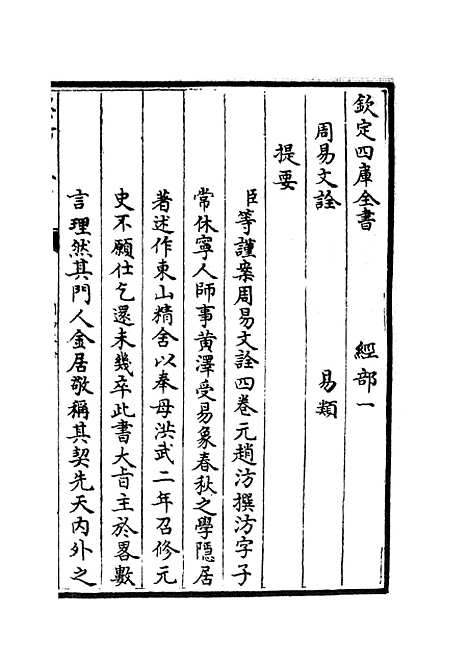 欽定四庫全書 經部一
周易文詮 易類
提要
臣等謹案周易文詮四卷元趙汸撰汸字子
常休寧人師事黄澤受易象春秋之學隱居
著述作東山精舍以奉母洪武二年召修元
史不願仕乞還未幾卒此書大旨主於畧數
言理然其門人金居敬稱其契先天内外之